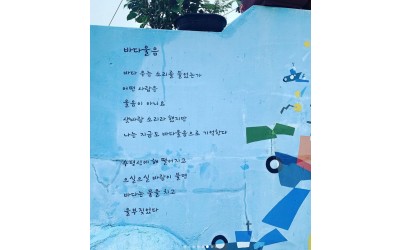 바다울음
바다 우는 소리를 들었는가
어떤 사람은
울음이 아니요
산바람 소리라 했지만
나는 지금도 바다울음으로 기억한다
수평선에 해 떨어지고
으실으실 바람이 불면
바다는 몸을 치고
울부짖었다